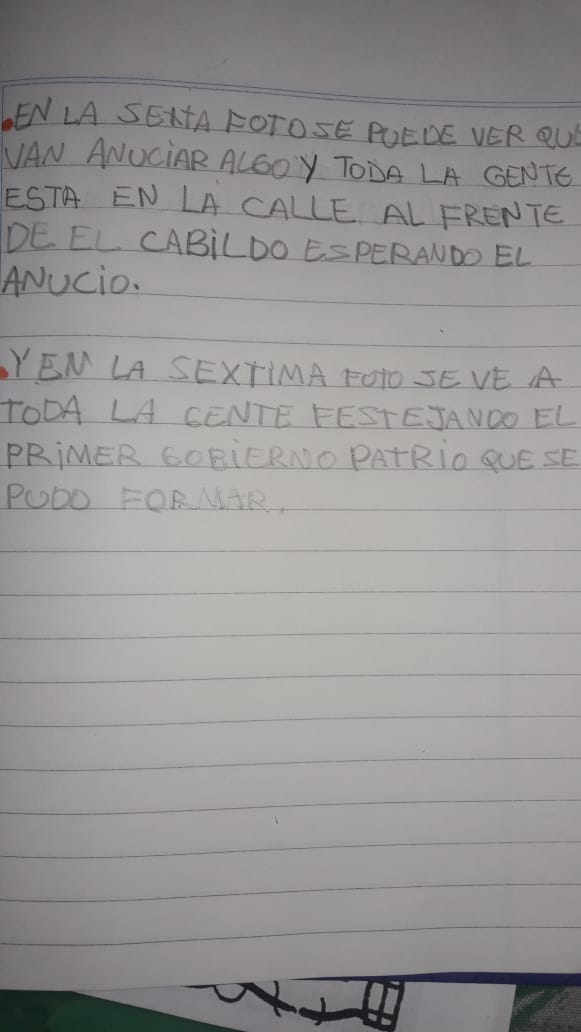 .EN LA SEXTA FOTO SE PUEDE VER QUE
VAN ANUCIAR ALGO Y TODA LA GENTE
ESTA EN LA CALLE AL FRENTE
DE EL CABILDO ESPERANDO EL
ANUCIO.
.Y EN LA SEXTIMA FOTO SE VE A
TODA LA GENTE FESTEJANDO EL
PRIMER GOBIERNO PATRIO QUE SE
PUDO FORMAR.